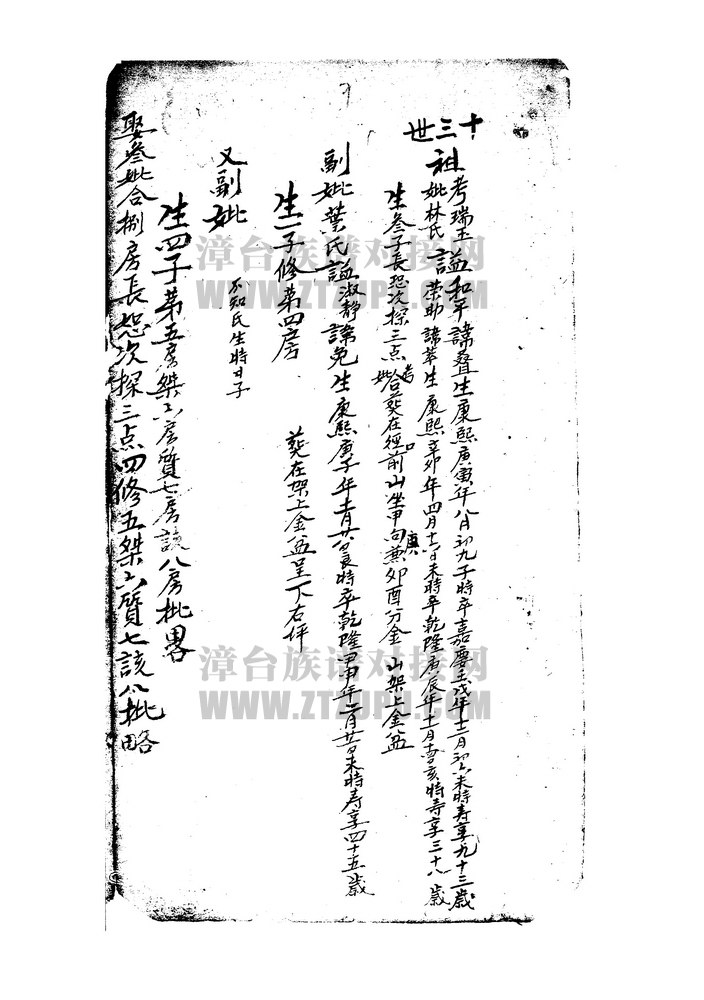 十三世
祖考瑞玉諡和平諱叠生康熙庚寅年八月初九子時卒嘉慶壬戌年十二月初六未時寿享九十三歲
妣林氏諡荣助諱萃生康熙辛卯年四月十六日未時卒乾隆庚辰年十一月十四亥時寿享三十八歲
生叁子長恕次探三点 考妣合葬在徑口前山坐甲向庚兼卯酉分金 山架上金盆
副妣葉氏諡淑静諱免生康熙庚子年十一月廿八日辰時卒乾隆甲申年二月廿一日未時寿享四十五歲
生一子修第四房 葬在架上金盆呈下右坪
又副妣 不知氏生時日子
生四子第五房桀六房質七房該八房批畧
娶叁妣合捌房長恕次探三点四修五桀六質七該八批略
漳台族谱对接网
WWW.ZTZUPU.COM
漳台族谱对接网
WWW.ZTZUPU.COM